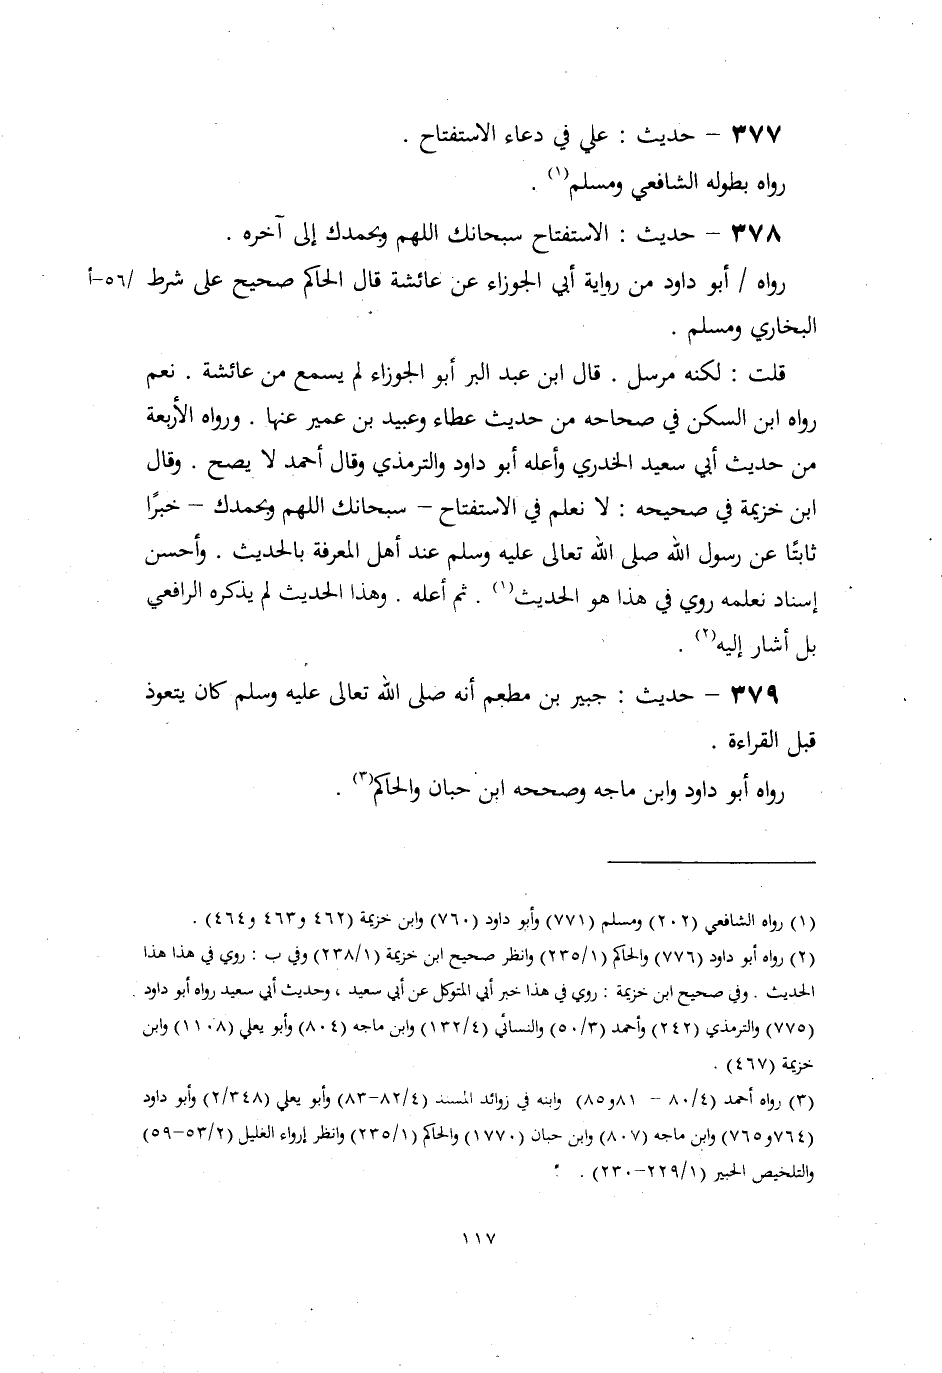 ٣٧٧ - حديث : علي في دعاء الاستفتاح .
رواه بطوله الشافعي ومسلم(١) .
٣٧٨ - حديث : الاستفتاح سبحانك اللهم وبحمدك إلى آخره .
رواه / أبو داود من رواية أبي الجوزاء عن عائشة قال الحاكم صحيح على شرط /٥٦-أ
البخاري ومسلم .
قلت : لكنه مرسل . قال ابن عبد البر أبو الجوزاء لم يسمع من عائشة . نعم
رواه ابن السكن في صحاحه من حديث عطاء وعبيد بن عمير عنها . ورواه الأربعة
من حديث أبي سعيد الخدري وأعله أبو داود والترمذي وقال أحمد لا يصح . وقال
ابن خزيمة في صحيحه : لا نعلم في الاستفتاح - سبحانك اللهم وبحمدك - خبرًا
ثابتًا عن رسول الله صلى الله تعالى عليه وسلم عند أهل المعرفة بالحديث . وأحسن
إسناد نعلمه روي في هذا هو الحديث(١) . ثم أعله . وهذا الحديث لم يذكره الرافعي
بل أشار إليه(٢) .
٣٧٩ - حديث : جبير بن مطعم أنه صلى الله تعالى عليه وسلم كان يتعوذ
قبل القراءة .
رواه أبو داود وابن ماجه وصححه ابن حبان والحاكم(٣) .
(١) رواه الشافعي (٢٠٢) ومسلم (٧٧١) وأبو داود (٧٦٠) وابن خزيمة (٤٦٢ و٤٦٣ و٤٦٤) .
(٢) رواه أبو داود (٧٧٦) والحاكم (٢٣٥/١) وانظر صحيح ابن خزيمة (٢٣٨/١) وفي ب : روي في هذا هذا
الحديث . وفي صحيح ابن خزيمة : روي في هذا خبر أبي المتوكل عن أبي سعيد ، وحديث أبي سعيد رواه أبو داود .
(٧٧٥) والترمذي (٢٤٢) وأحمد (٥٠/٣) والنسائي (١٣٢/٤) وابن ماجه (٨٠٤) وأبو يعلي (١١٠٨) وابن
خزيمة (٤٦٧) .
(٣) رواه أحمد (٨٠/٤ - ٨١و٨٥) وابنه في زوائد المسند (٨٢/٤-٨٣) وأبو يعلي (٢/٣٤٨) وأبو داود
(٧٦٤و٧٦٥) وابن ماجه (٨٠٧) وابن حبان (١٧٧٠) والحاكم (٢٣٥/١) وانظر إرواء الغليل (٥٣/٢-٥٩)
والتلخيص الحبير (٢٢٩/١-٢٣٠) .
١١٧